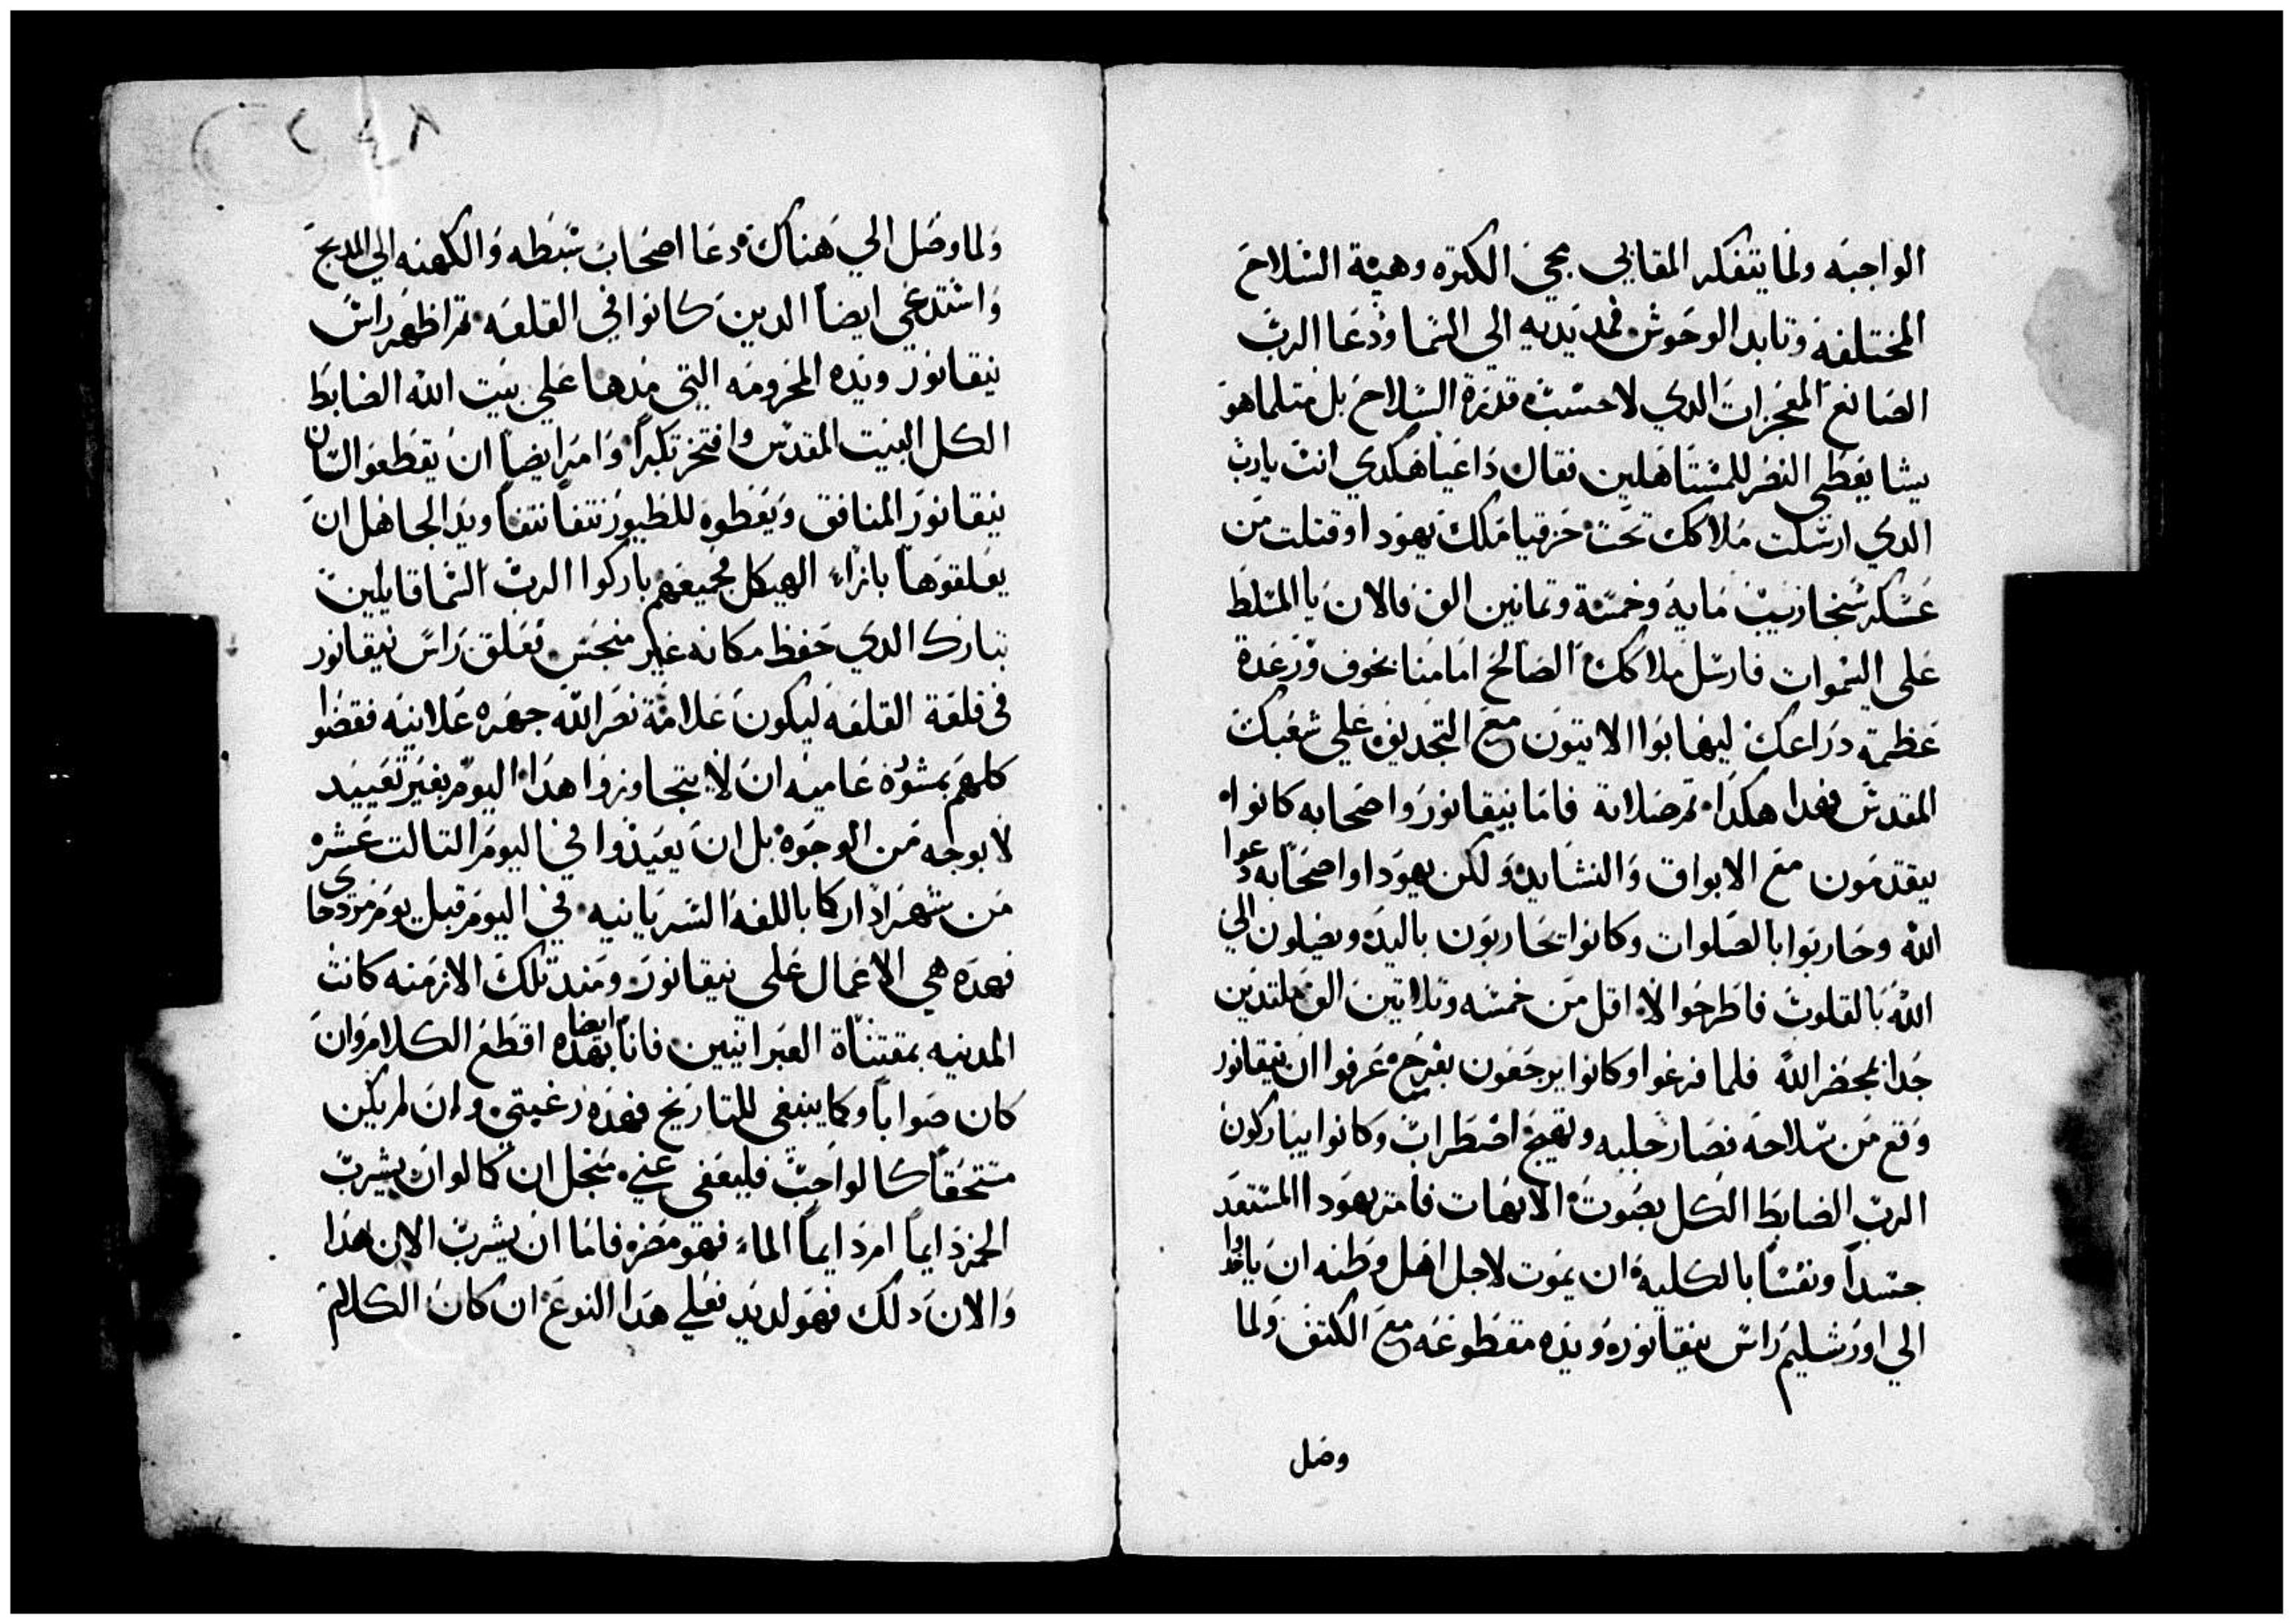 الواجبه ولما يتفكر المقابي مجي الكتره وهية السلاح
المختلفه وتابد الوحوش فمد يديه الي السما ودعا الرب
الصانع المعجزات الدي لا حسب قدرة السلاح بل متلما هو
يشا يعطي النصر للمستاهلين فقال داعيا هكدي انت يارب
الدي ارسلت ملاكك تحت حزقيا ملك يهودا وقتلت من
عسكر سنحاريب مايه وخمسة وتمانين الف فالان يا المسلط
علي السموات فارسل ملاكك الصالح امامنا بخوف ورعدة
عظمة دراعك ليهابوا الاتيون مع التجديف علي شعبك
المقدس فهدا هكدا تم صلاته فاما نيقانور واصحابه كانوا
يتقدمون مع الابواق والنشايد ولكن يهودا واصحابه دعوا
الله وحاربوا بالصلوات وكانوا يحاربون باليد ويصلون الي
الله بالقلوب فاطرحوا لا اقل من خمسه وتلاتين الف ملتدين
جدا بمحضر الله فلما فرغوا وكانوا يرجعون بفرح عرفوا ان نيقانور
وقع من سلاحه فصار جلبه وتهيج اضطراب وكانوا يباركون
الرب الضابط الكل بصوت الابهات فامر يهودا المستعد
جسدا ونفسا بالكليه ان يموت لاجل اهل وطنه ان ياخدوا
الي اورشليم راس نيقانور ويده مقطوعه مع الكتف ولما
وصل
ولما وصل الي هناك دعا اصحاب سبطه والكهنه الي المدبح
واستدعي ايضا الدين كانوا في القلعه تم اظهر راس
نيقانور ويده المحرومه التي مدها علي بيت الله الضابط
الكل البيت المقدس وافتخر تكبرا وامر ايضا ان يقطعوا لسان
نيقانور المنافق ويعطوه للطيور نتفا نتفا ويد الجاهل ان
يعلقوها بازاء الهيكل فجميعهم باركوا الرب السما قايلين
تبارك الدي حفظ مكانه غير منجس فعلق راس نيقانور
في قلعة القلعه ليكون علامة نصر الله جهره علانيه فقضوا
كلهم بمشوره عاميه ان لا يتجاوزوا هدا اليوم بغير تعييد
لا بوجه من الوجوه بل ان يعيدوا في اليوم التالت عشره
من شهر ادار كما باللغه السريانيه في اليوم قبل يوم مردخاي
فهده هي الاعمال علي نيقانور ومند تلك الازمنه كانت
المدنيه بمقتناة العبرانيين فانا ايضا بهده اقطع الكلام وان
كان صوابا وكما ينبغي للتاريخ فهده رغبتي وان لم يكن
مستحقا كالواجب فليعفي عني منجل ان كما لو ان يشرب
الخمر دايما ام دايما الماء فهو مضره فاما ان يشرب الان هدا
والان دلك فهو لديد فعلي هدا النوع ان كان الكلام